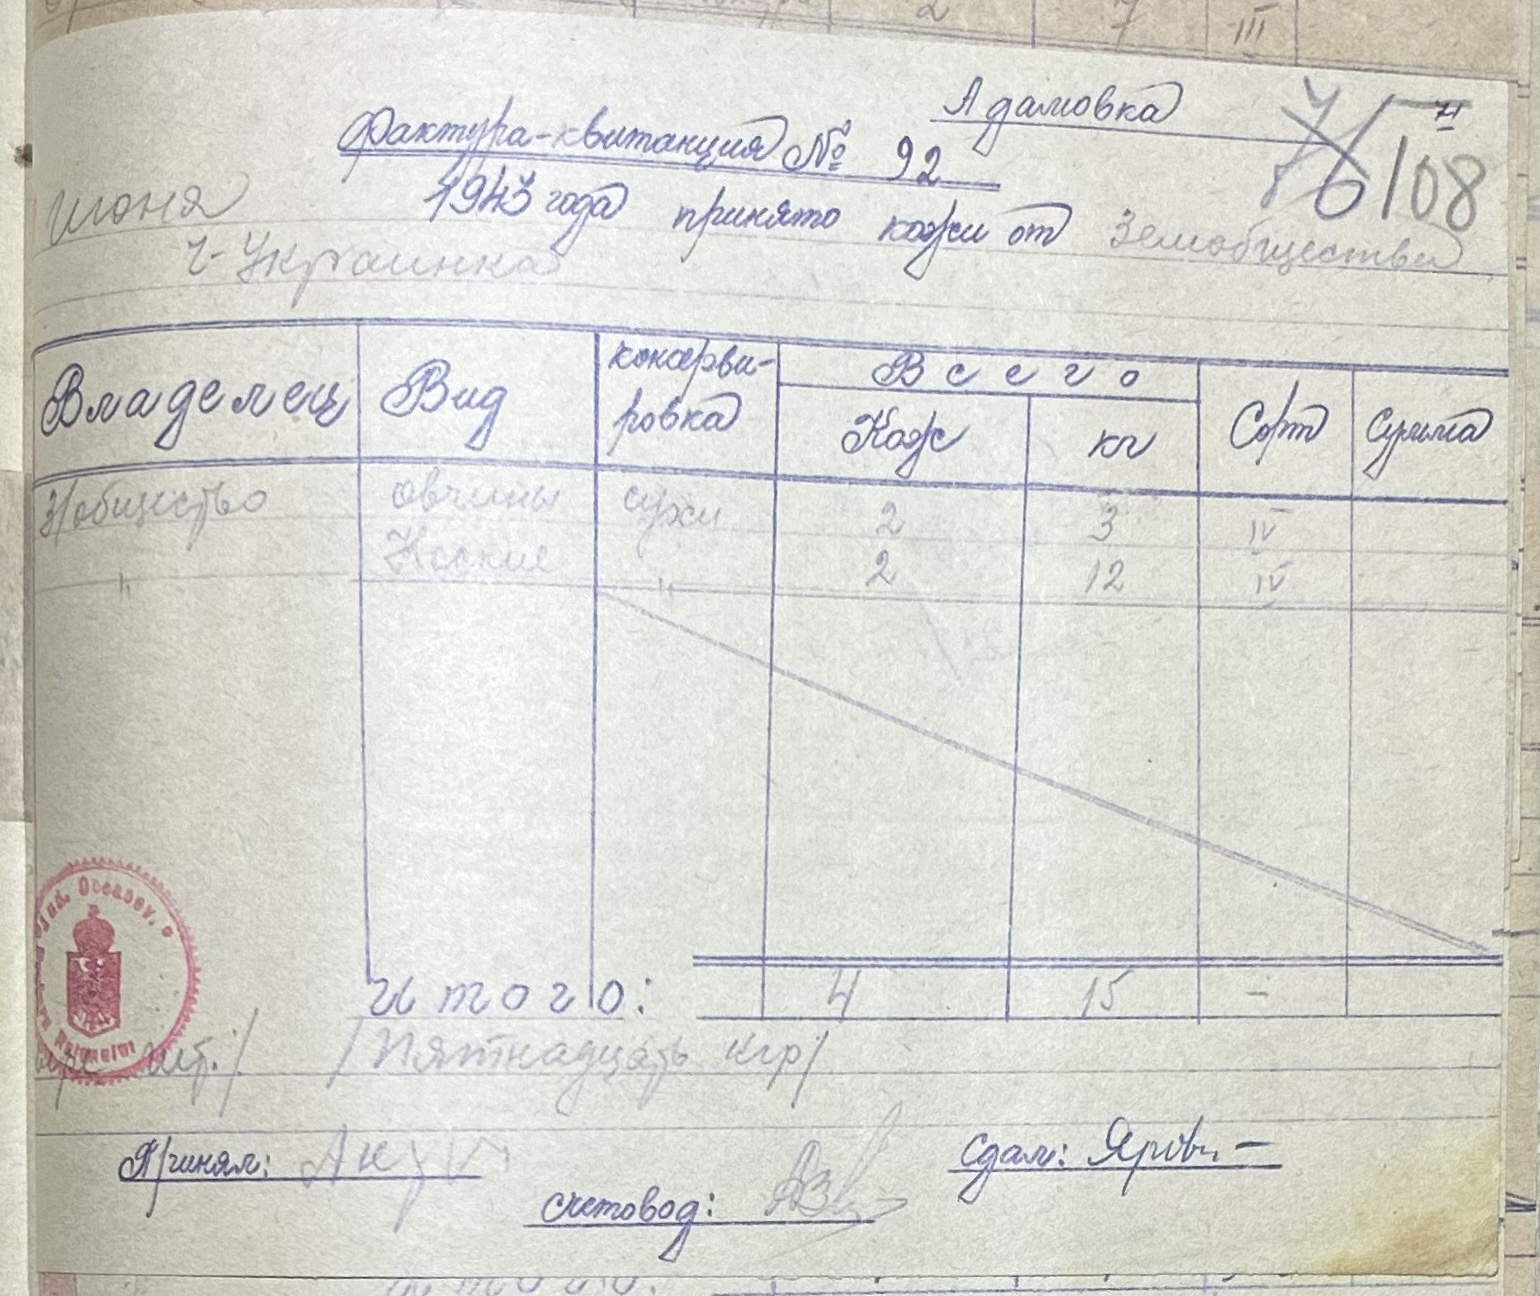 2 7 III
Адамовка
71
Фактура-квитанция № 92
76/108
июня 1943 года принято кожи от Земобщества
Ч-Украинка
Владелец Вид консерви-
ровка
Всего
Кож кг
Сорт Сумма
З/общество овчины сухи 2 3 IV
" " 2 12 IV
Итого: 4 15 -
шт./ /Пятнадцать кгр/
Принял:
Сдал:
счетовод: